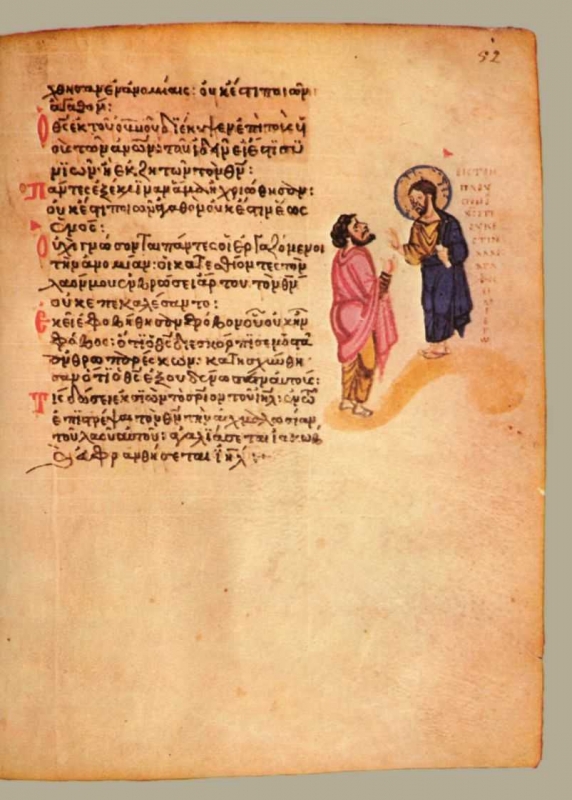 52
χθησαν ἐν ἀνομίαις: οὐκ ἔστι ποιῶν
ἀγαθόν:
Ὁ θς ἐκ τοῦ οὐνοῦ διέκυψεν ἐπὶ τοὺς υἱ
οὺς τῶν ἀνων τοῦ ἰδεῖν εἰ ἔστι συ
νίων ἢ ἐκζητῶν τὸν θν:
Πάντες ἐξέκλιναν ἅμα ἠχριώθησαν:
οὐκ ἔστι ποιῶν ἀγαθὸν οὐκ ἔστιν ἕως
ἑνός:
Οὐχὶ γνώσονται πάντες οἱ ἐργαζόμενοι
τὴν ἀνομίαν: οἱ κατεσθίοντες τὸν
λαόν μου ἐν βρώσει ἄρτου τὸν θν
οὐκ ἐπεκαλέσαντο:
Ἐκεῖ ἐφοβήθησαν φόβον οὗ οὐκ ἦν
φόβος: ὅτι ὁ θς διεσκόρπισεν ὀστᾶ
ἀνθρωπαρέσκων: κατῃσχύνθη
σαν ὅτι ὁ θς ἐξουδένωσεν αὐτούς:
Τίς δώσει ἐκ σιὼν τὸ σριον τοῦ ιηλ: ἐν τῷ
ἐπιστρέψαι τὸν θν τὴν αἰχμαλωσίαν
τοῦ λαοῦ αὐτοῦ: ἀγαλιάσεται ἰακὼβ
καὶ εὐφρανθήσεται ιηλ: